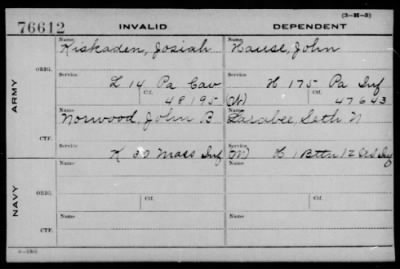 (3-H-3)
76612 INVALID DEPENDENT
Name Name
Kiskaden, Josiah Hause, John
ORIG.
Service Service
L 14 Pa Cav H 175 Pa Inf
Ctf. Ctf.
48195 (W) 47643
ARMY
Name Name
Norwood, John B Larabee, Seth N
CTF.
Service Service
K Mass Inf (W) H 1 Battn 12 U.S. Inf
NAVY
Name Name
ORIG.
Service Service
Ctf. Ctf.
Name Name
CTF.
Service Service